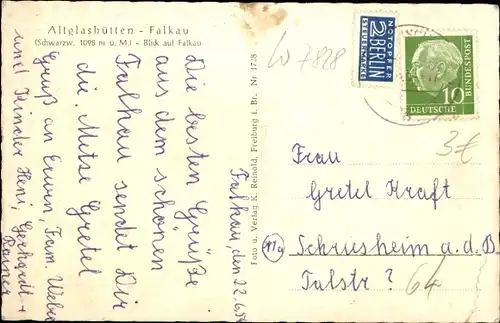 Altglashütten - Falkau
(Schwarzw. 1098 m ü. M.) - Blick auf Falkau
Falkau, den 22.6.
Die besten Grüße
aus dem schönen
Falkau sendet Dir
die Metze Gretel
Gruß an Erwin, Fam. Weber
und Kinder Heni, Gerhardt +
Rainer
Foto u. Verlag K. Reinold, Freiburg i. Br. Nr 1728
W 7828
NOTOPFER
2 BERLIN
STEUERMARKE
DEUTSCHE BUNDESPOST
10
3€
Frau
Gretel Kraft
Schriesheim a.d.B.
Talstr ?
64